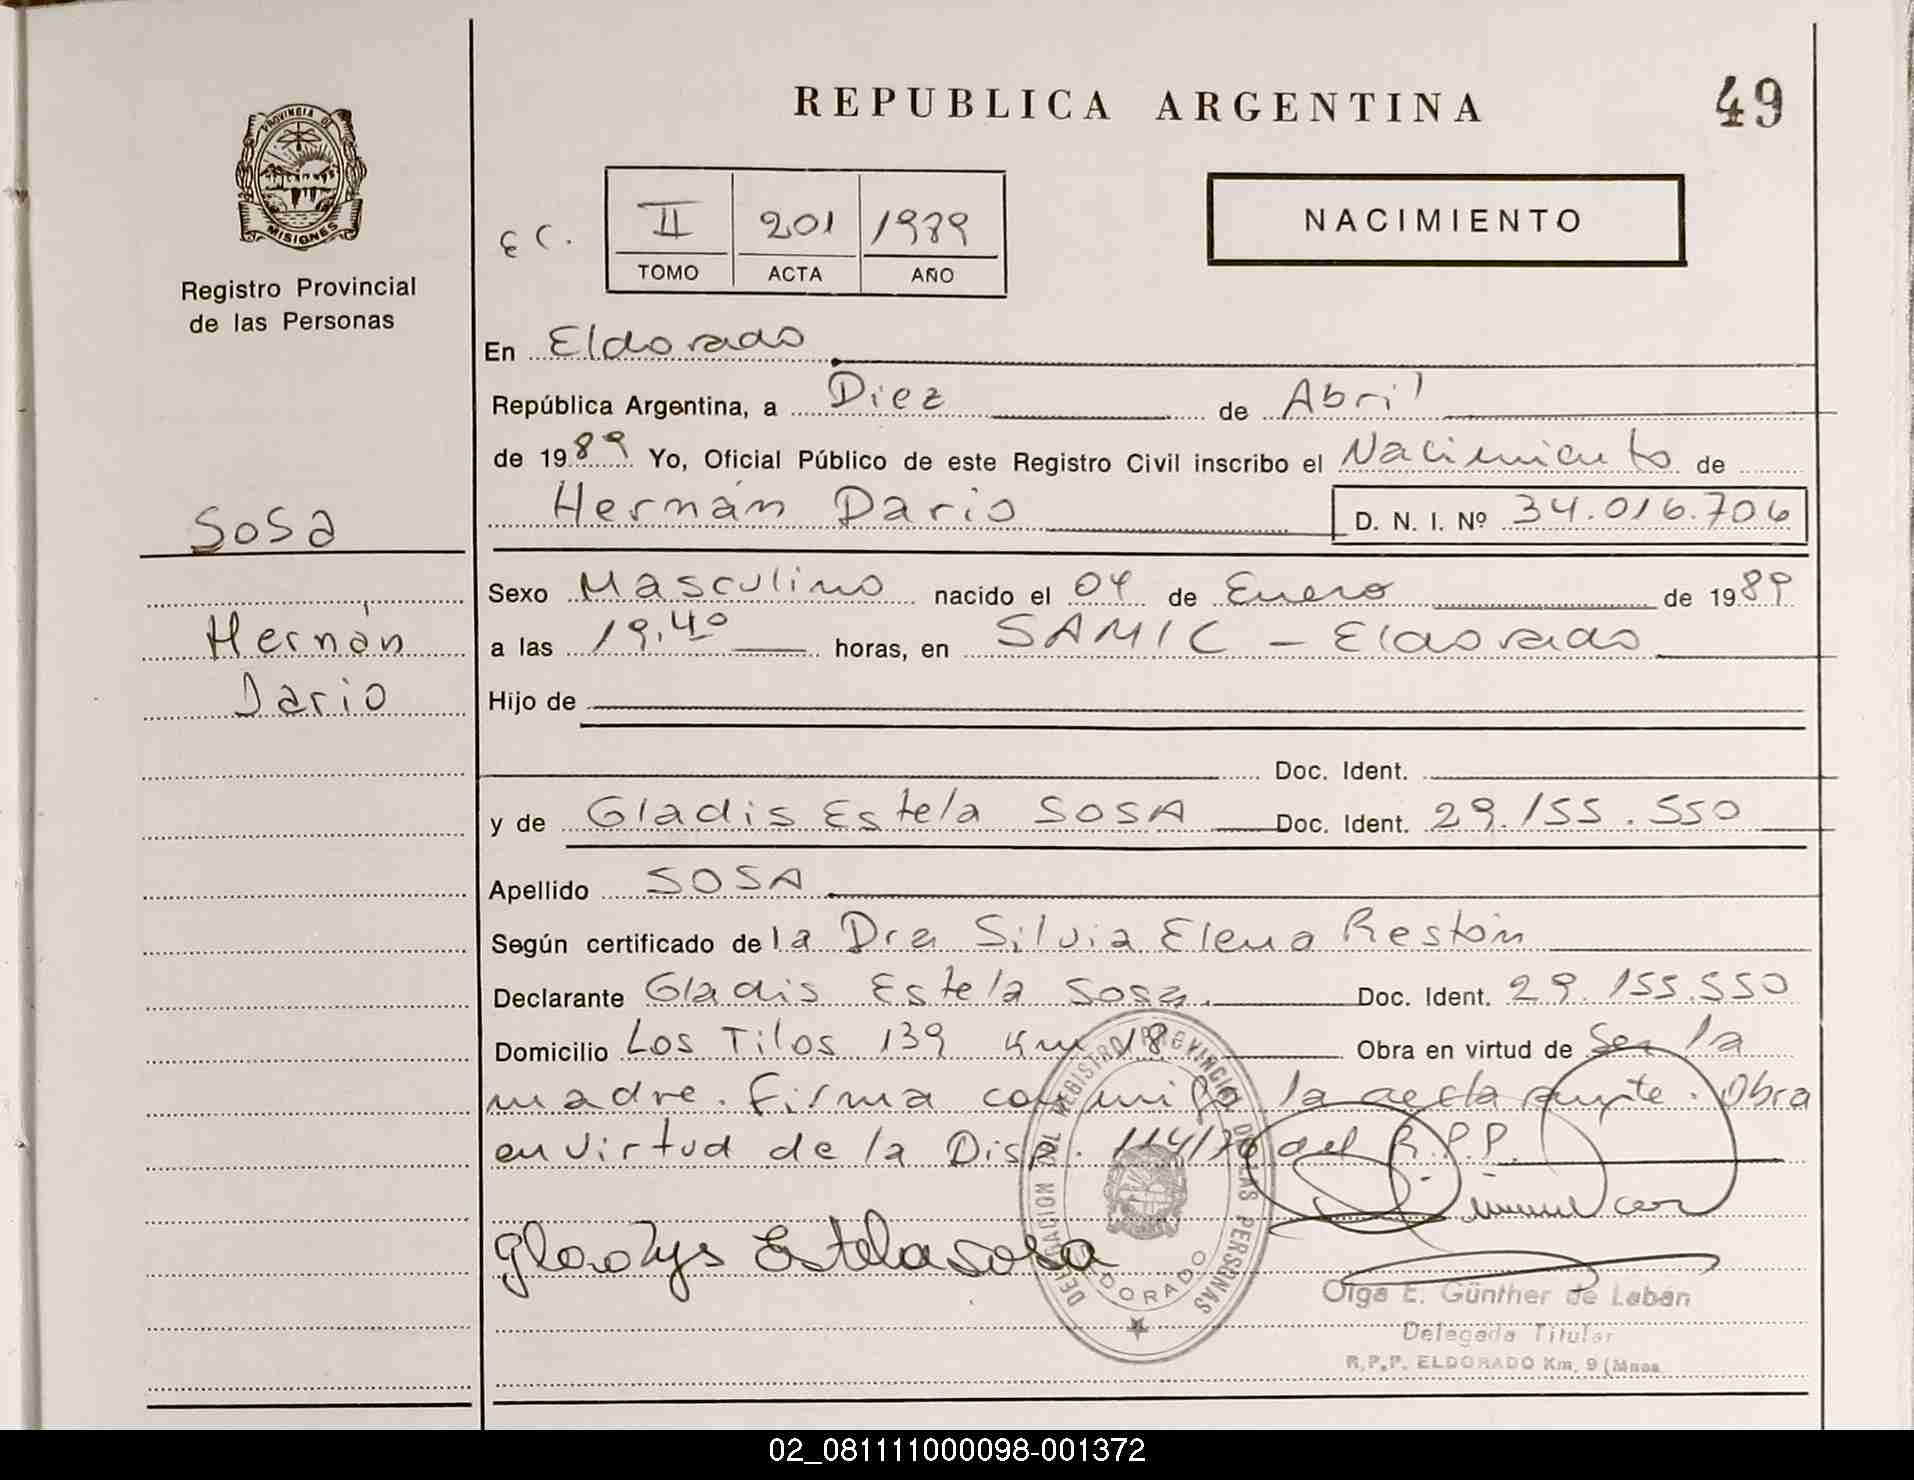 REPUBLICA ARGENTINA
49
PROVINCIA DE
MISIONES
Registro Provincial
de las Personas
E C.
II 201 1989
TOMO ACTA AÑO
NACIMIENTO
En Eldorado
República Argentina, a Diez de Abril
de 1989 Yo, Oficial Público de este Registro Civil inscribo el Nacimiento de
Hernán Dario D. N. I. Nº 34.016.706
Sosa
Hernán
Dario
Sexo Masculino nacido el 04 de Enero de 1989
a las 19.40 horas, en SAMIC - Eldorado
Hijo de
Doc. Ident.
y de Gladis Estela SOSA Doc. Ident. 29.155.550
Apellido SOSA
Según certificado de la Dra Silvia Elena Restón
Declarante Gladis Estela Sosa. Doc. Ident. 29.155.550
Domicilio Los Tilos 139 Km 18 Obra en virtud de Ser la
madre. Firma conmigo la acta Obra
en virtud de la Disp. 114/76 del R.P.P.
Gladys Estela Sosa
DELEGACION DEL REGISTRO PROVINCIAL DE LAS PERSONAS
ELDORADO
Olga E. Günther de Laban
Delegada Titular
R.P.P. ELDORADO Km. 9 (Mnes
02_081111000098-001372